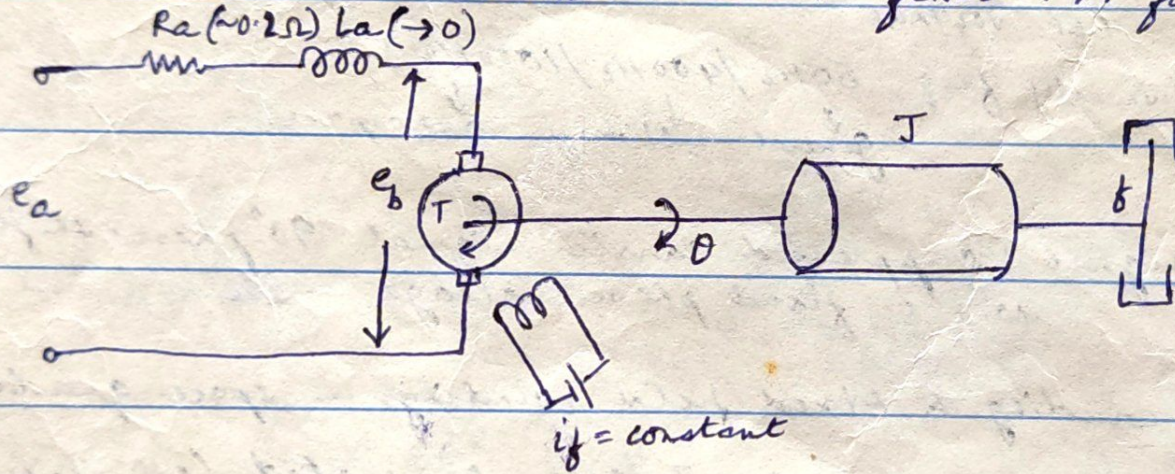 Ra (~0.2Ω) La (→0)
J
ea
eb
T
f
θ
if = constant